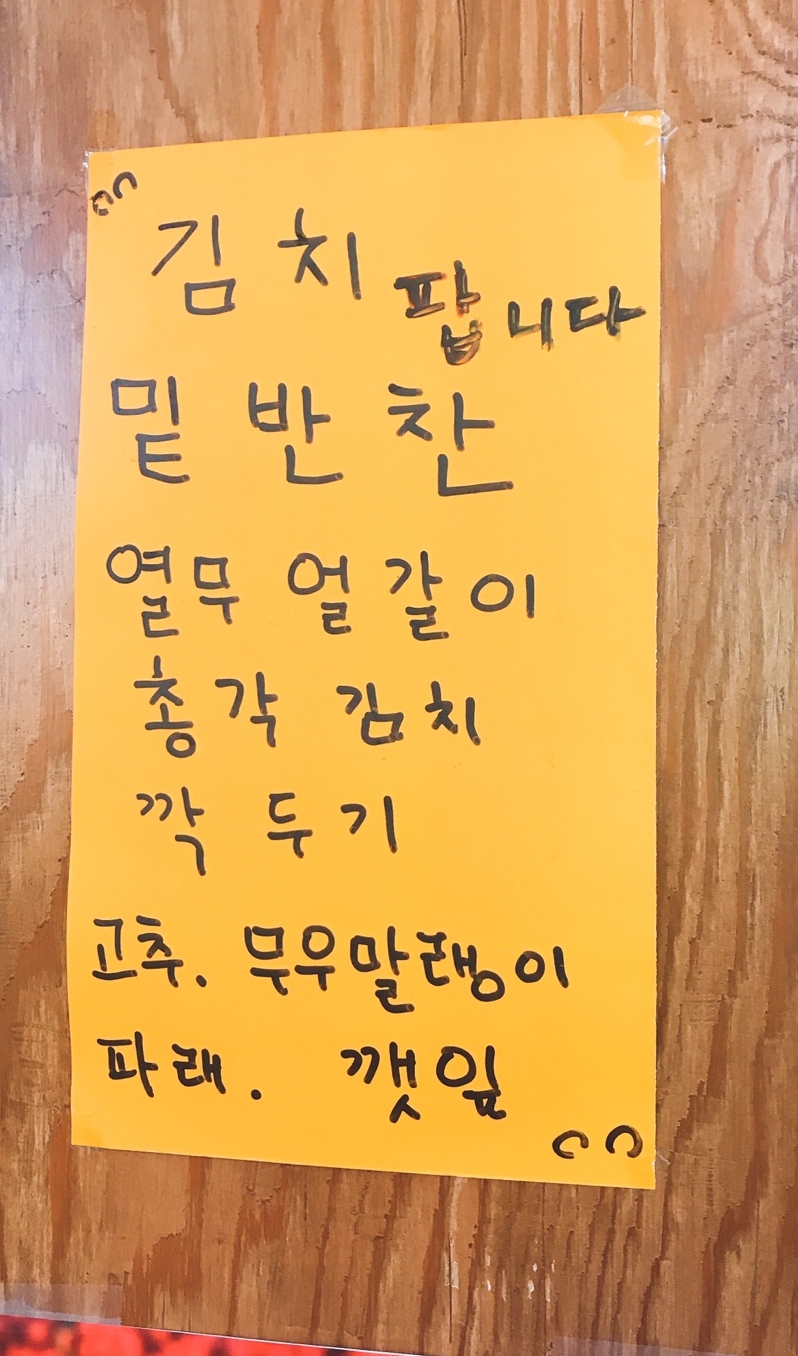 김치 팝니다
밑반찬
열무 얼갈이
총각 김치
깍두기
고추. 무우말랭이
파래. 깻잎